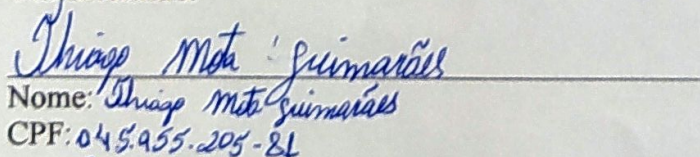 Thiago Mota Guimarães
Nome: Thiago Mota Guimarães
CPF: 045.955.205-81